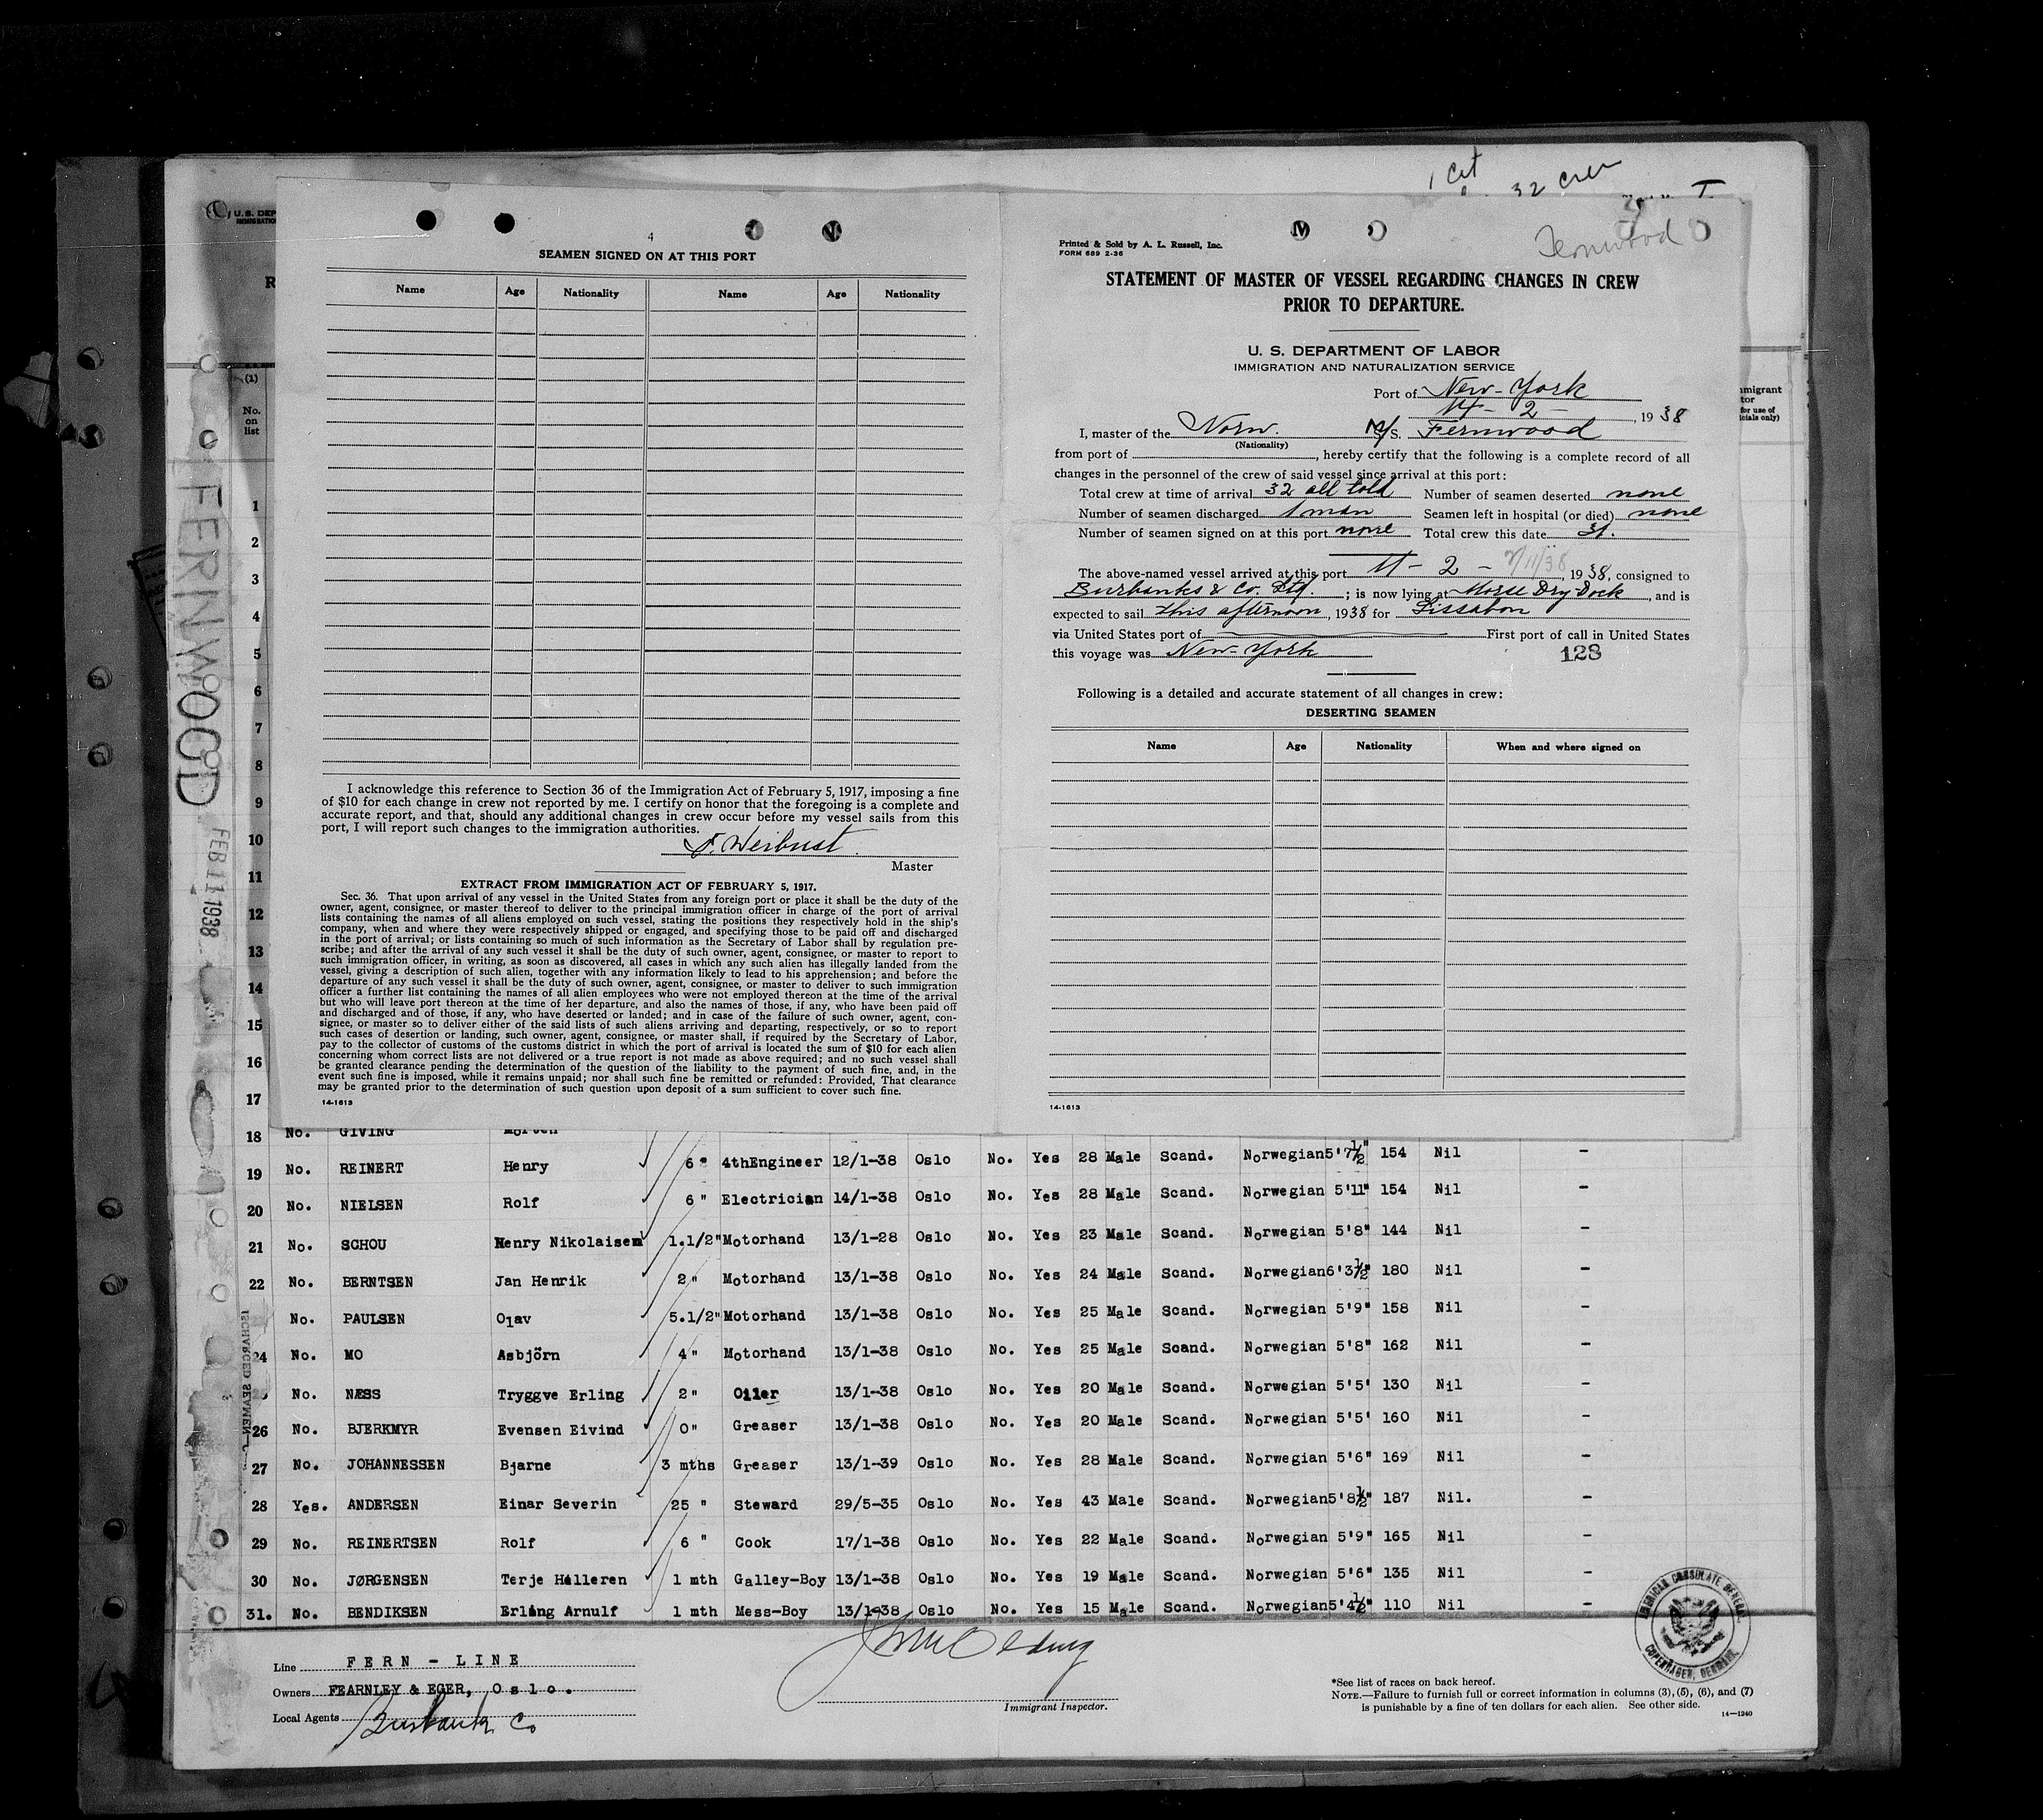 1 Cet
32 crew
U.S. DEP
IMMIGRATION
R
(1)
No.
on
list
1
2
3
4
5
6
7
8
9
10
11
12
13
14
15
16
17
FERNWOOD
FEB 11 1938
4
SEAMEN SIGNED ON AT THIS PORT
Name Age Nationality Name Age Nationality
I acknowledge this reference to Section 36 of the Immigration Act of February 5, 1917, imposing a fine
of $10 for each change in crew not reported by me. I certify on honor that the foregoing is a complete and
accurate report, and that, should any additional changes in crew occur before my vessel sails from this
port, I will report such changes to the immigration authorities.
Weibust
Master
EXTRACT FROM IMMIGRATION ACT OF FEBRUARY 5, 1917.
Sec. 36. That upon arrival of any vessel in the United States from any foreign port or place it shall be the duty of the
owner, agent, consignee, or master thereof to deliver to the principal immigration officer in charge of the port of arrival
lists containing the names of all aliens employed on such vessel, stating the positions they respectively hold in the ship's
company, when and where they were respectively shipped or engaged, and specifying those to be paid off and discharged
in the port of arrival; or lists containing so much of such information as the Secretary of Labor shall by regulation pre-
scribe; and after the arrival of any such vessel it shall be the duty of such owner, agent, consignee, or master to report to
such immigration officer, in writing, as soon as discovered, all cases in which any such alien has illegally landed from the
vessel, giving a description of such alien, together with any information likely to lead to his apprehension; and before the
departure of any such vessel it shall be the duty of such owner, agent, consignee, or master to deliver to such immigration
officer a further list containing the names of all alien employees who were not employed thereon at the time of the arrival
but who will leave port thereon at the time of her departure, and also the names of those, if any, who have been paid off
and discharged and of those, if any, who have deserted or landed; and in case of the failure of such owner, agent, con-
signee, or master so to deliver either of the said lists of such aliens arriving and departing, respectively, or so to report
such cases of desertion or landing, such owner, agent, consignee, or master shall, if required by the Secretary of Labor,
pay to the collector of customs of the customs district in which the port of arrival is located the sum of $10 for each alien
concerning whom correct lists are not delivered or a true report is not made as above required; and no such vessel shall
be granted clearance pending the determination of the question of the liability to the payment of such fine, and, in the
event such fine is imposed, while it remains unpaid; nor shall such fine be remitted or refunded: Provided, That clearance
may be granted prior to the determination of such question upon deposit of a sum sufficient to cover such fine.
14-1613
Printed & Sold by A. L. Russell, Inc.
FORM 689 2-36
Fernwood
STATEMENT OF MASTER OF VESSEL REGARDING CHANGES IN CREW
PRIOR TO DEPARTURE.
U. S. DEPARTMENT OF LABOR
IMMIGRATION AND NATURALIZATION SERVICE
Port of New-York
14 - 2 - , 1938
I, master of the Norw. M/S. Fernwood
(Nationality)
from port of , hereby certify that the following is a complete record of all
changes in the personnel of the crew of said vessel since arrival at this port:
Total crew at time of arrival 32 all told Number of seamen deserted none
Number of seamen discharged 1 man Seamen left in hospital (or died) none
Number of seamen signed on at this port none Total crew this date 31.
The above-named vessel arrived at this port 11 - 2 - 2/11/38, 1938, consigned to
Burbanks & Co. Ltd. ; is now lying at Morse Dry-Dock, and is
expected to sail this afternoon, 1938 for Lissabon
via United States port of First port of call in United States
this voyage was New-York 128
Following is a detailed and accurate statement of all changes in crew:
DESERTING SEAMEN
Name Age Nationality When and where signed on
14-1613
mmigrant
tor
for use of
icials only)
18 No. GIVING Morten
19 No. REINERT Henry 6" 4thEngineer 12/1-38 Oslo No. Yes 28 Male Scand. Norwegian 5'7½" 154 Nil -
20 No. NIELSEN Rolf 6" Electrician 14/1-38 Oslo No. Yes 28 Male Scand. Norwegian 5'11" 154 Nil -
21 No. SCHOU Henry Nikolaisen 1.1/2" Motorhand 13/1-28 Oslo No. Yes 23 Male Scand. Norwegian 5'8" 144 Nil -
22 No. BERNTSEN Jan Henrik 2" Motorhand 13/1-38 Oslo No. Yes 24 Male Scand. Norwegian 6'3½" 180 Nil -
No. PAULSEN Olav 5.1/2" Motorhand 13/1-38 Oslo No. Yes 25 Male Scand. Norwegian 5'9" 158 Nil -
24 No. MO Asbjörn 4" Motorhand 13/1-38 Oslo No. Yes 25 Male Scand. Norwegian 5'8" 162 Nil -
No. NÆSS Tryggve Erling 2" Oiler 13/1-38 Oslo No. Yes 20 Male Scand. Norwegian 5'5' 130 Nil -
26 No. BJERKMYR Evensen Eivind 0" Greaser 13/1-38 Oslo No. Yes 20 Male Scand. Norwegian 5'5' 160 Nil -
27 No. JOHANNESSEN Bjarne 3 mths Greaser 13/1-39 Oslo No. Yes 28 Male Scand. Norwegian 5'6" 169 Nil -
28 Yes. ANDERSEN Einar Severin 25 " Steward 29/5-35 Oslo No. Yes 43 Male Scand. Norwegian 5'8½" 187 Nil. -
29 No. REINERTSEN Rolf 6 " Cook 17/1-38 Oslo No. Yes 22 Male Scand. Norwegian 5'9" 165 Nil -
30 No. JØRGENSEN Terje Halleren 1 mth Galley-Boy 13/1-38 Oslo No. Yes 19 Male Scand. Norwegian 5'6" 135 Nil -
31. No. BENDIKSEN Erling Arnulf 1 mth Mess-Boy 13/1-38 Oslo No. Yes 15 Male Scand. Norwegian 5'4½" 110 Nil -
ISCHARGED SEAMEN
Line FERN - LINE
Owners FEARNLEY & EGER, Oslo.
Local Agents Burbank Co
Immigrant Inspector.
AMERICAN CONSULATE GENERAL
COPENHAGEN, DENMARK.
*See list of races on back hereof.
NOTE.—Failure to furnish full or correct information in columns (3), (5), (6), and (7)
is punishable by a fine of ten dollars for each alien. See other side.
14—1240